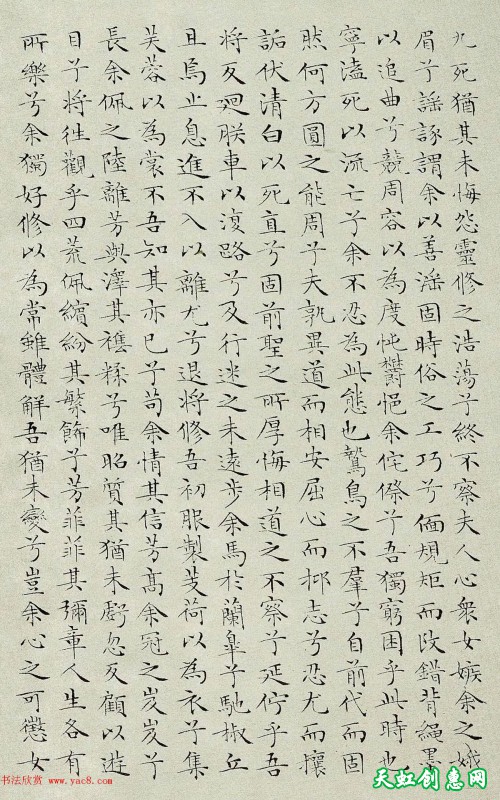 九死猶其未悔怨靈修之浩蕩兮終不察夫人心衆女嫉余之娥
眉兮謡諑謂余以善淫固時俗之工巧兮偭規矩而改錯背繩墨
以追曲兮競周容以為度忳欝悒余侘傺兮吾獨窮困乎此時也
寧溘死以流亡兮余不忍為此態也鷙鳥之不羣兮自前代而固
然何方圓之能周兮夫孰異道而相安屈心而抑志兮忍尤而攘
詬伏清白以死直兮固前聖之所厚悔相道之不察兮延佇乎吾
将反廻朕車以復路兮及行迷之未遠步余馬於蘭皐兮馳椒丘
且焉止息進不入以離尤兮退将修吾初服製芰荷以為衣兮集
芙蓉以為裳不吾知其亦已兮苟余情其信芳髙余冠之岌岌兮
長余佩之陸離芳與澤其襍糅兮唯昭質其猶未虧忽反顧以遊
目兮将往觀乎四荒佩繽紛其繁飾兮芳菲菲其彌章人生各有
所樂兮余獨好修以為常雖體解吾猶未變兮豈余心之可懲女
书法欣赏 www.yac8.com
天虹创惠网